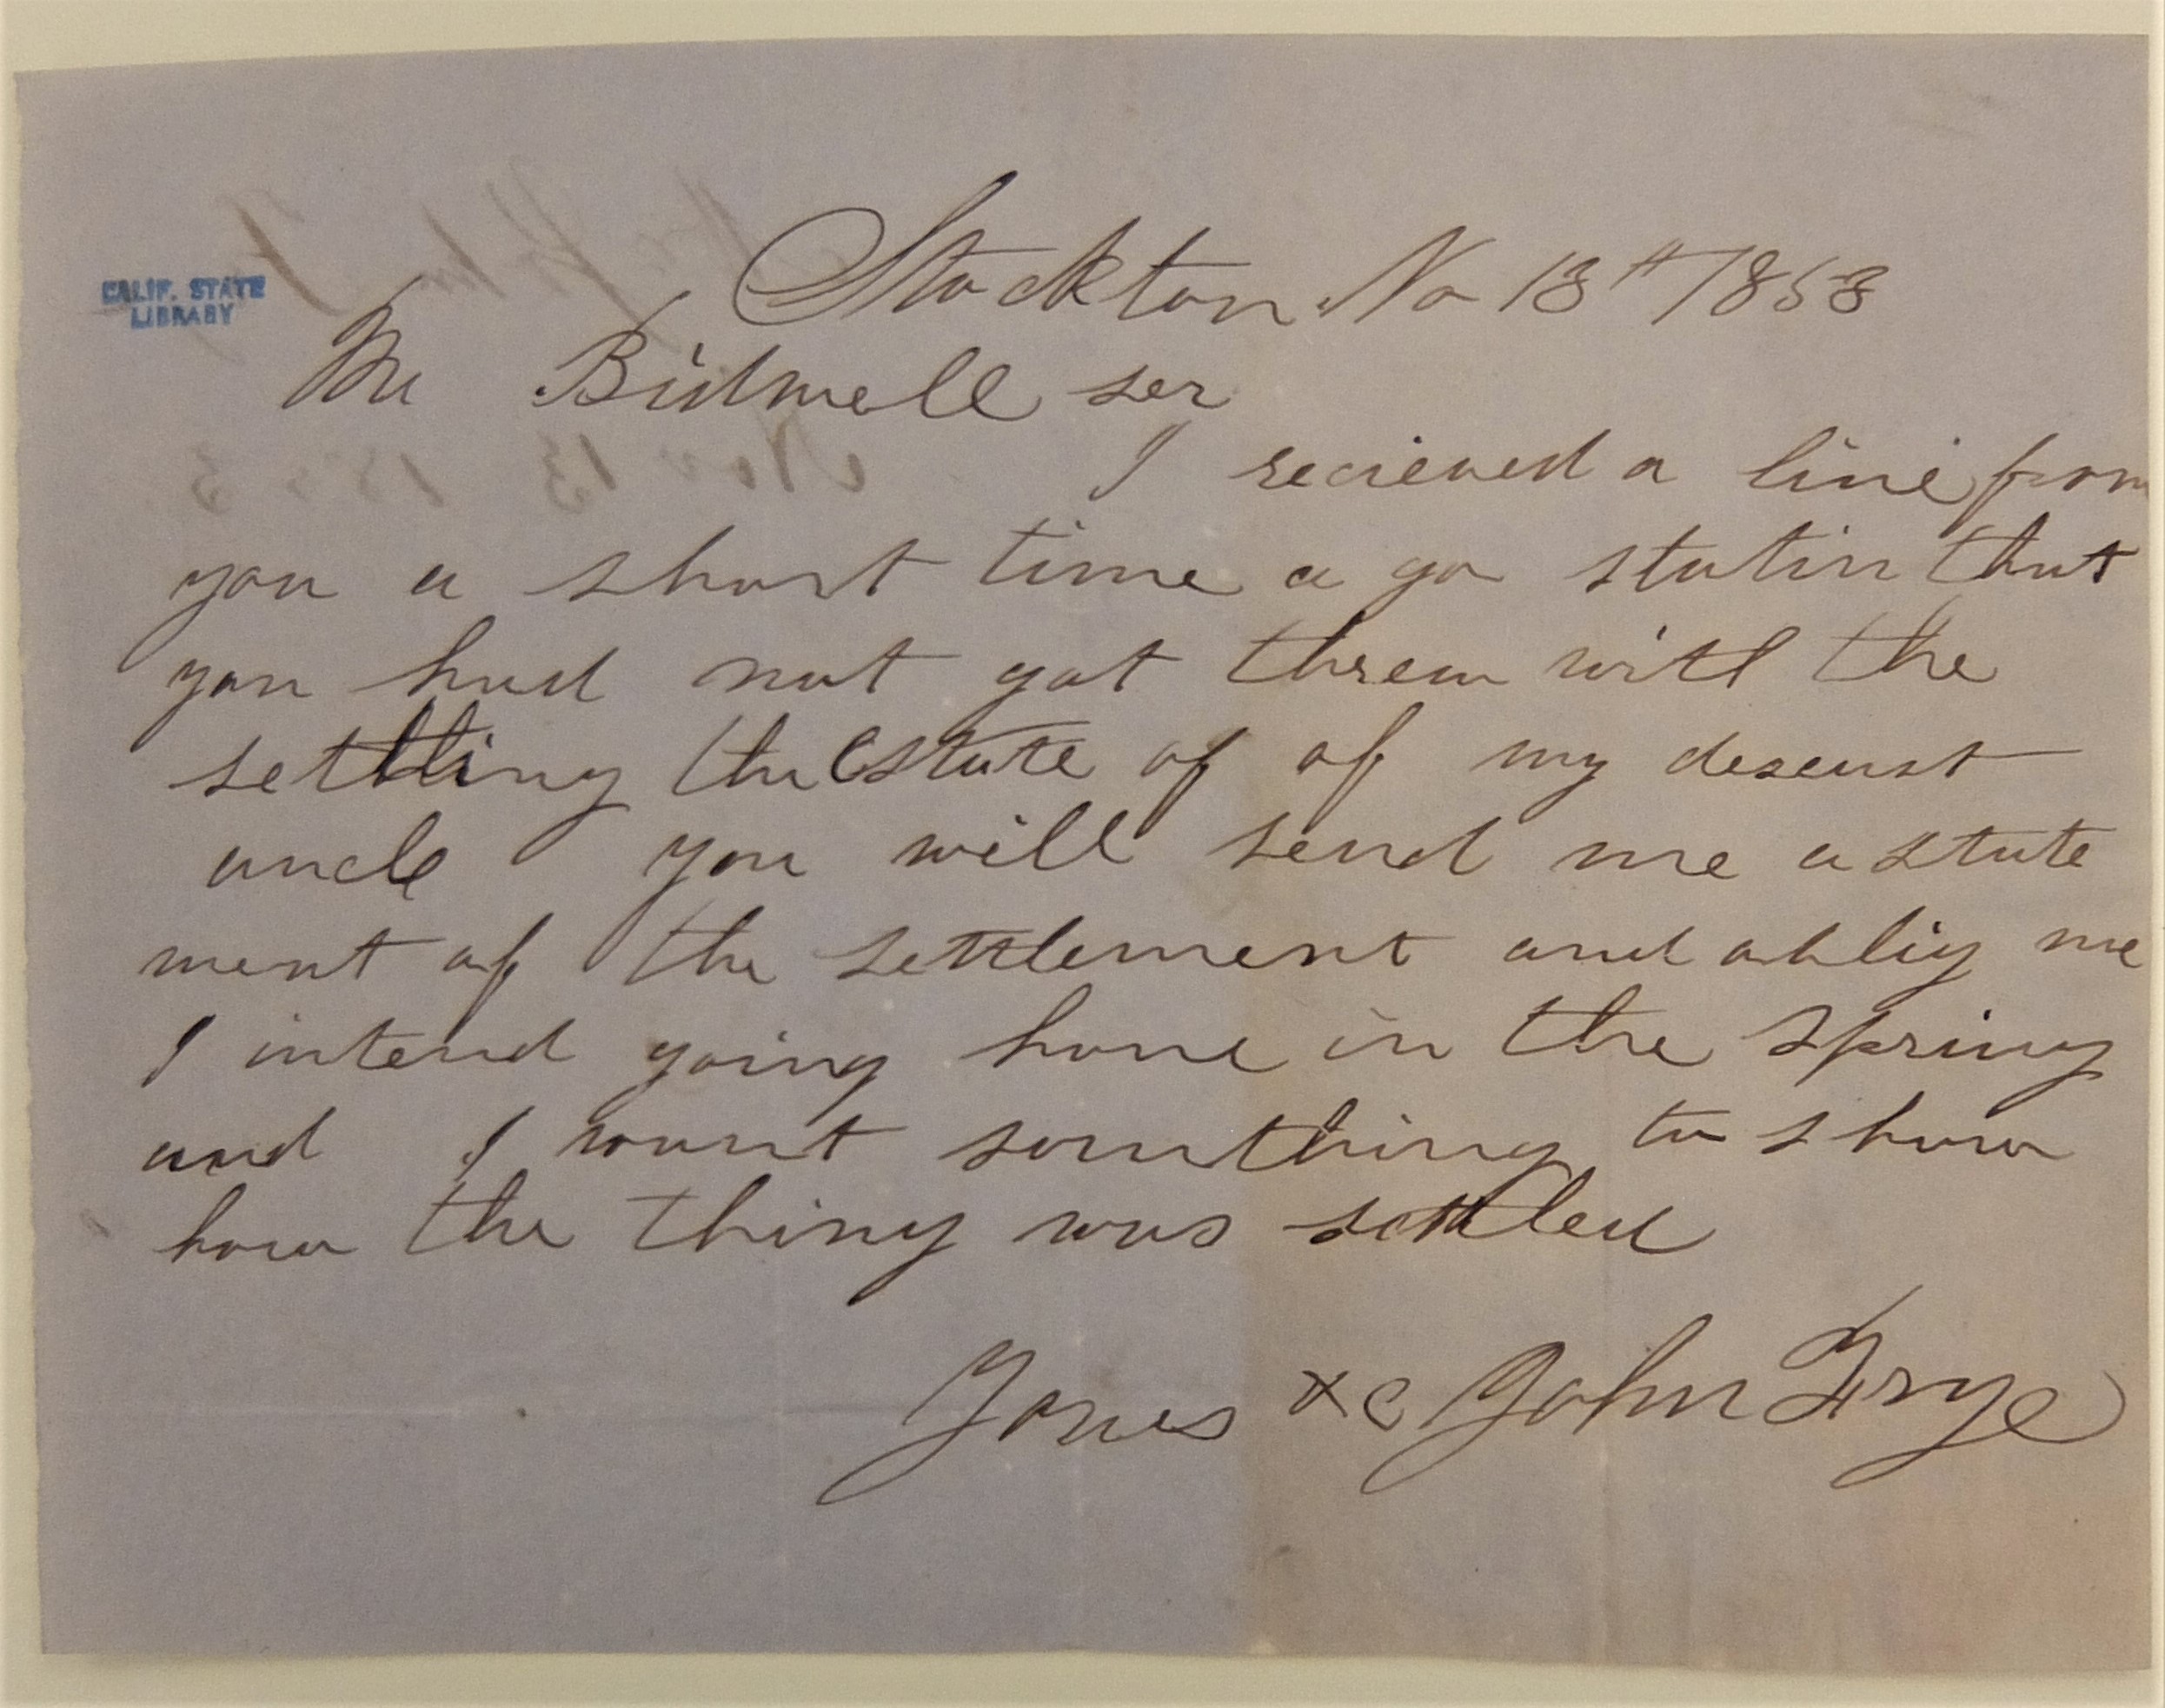 Stockton No 13th 1853
CALIF. STATE
LIBRARY
Mr Bidwell ser
I recieved a line from
you a short time a go statin that
you had not got threw with the
settling the estate of of my deseast
uncle you will send me a state
ment of the settlement and oblig me
I intend going home in the spring
and I want somthing to show
how the thing was settled
Yours &c John Frye
Nov 13 1853